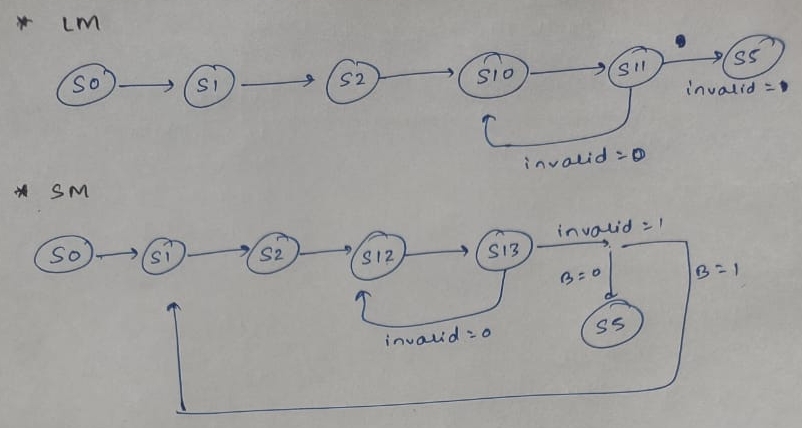 * LM
S0 S1 S2 S10 S11 S5
invalid = 1
invalid = 0
* SM
S0 S1 S2 S12 S13 invalid = 1
B = 0 B = 1
S5
invalid = 0